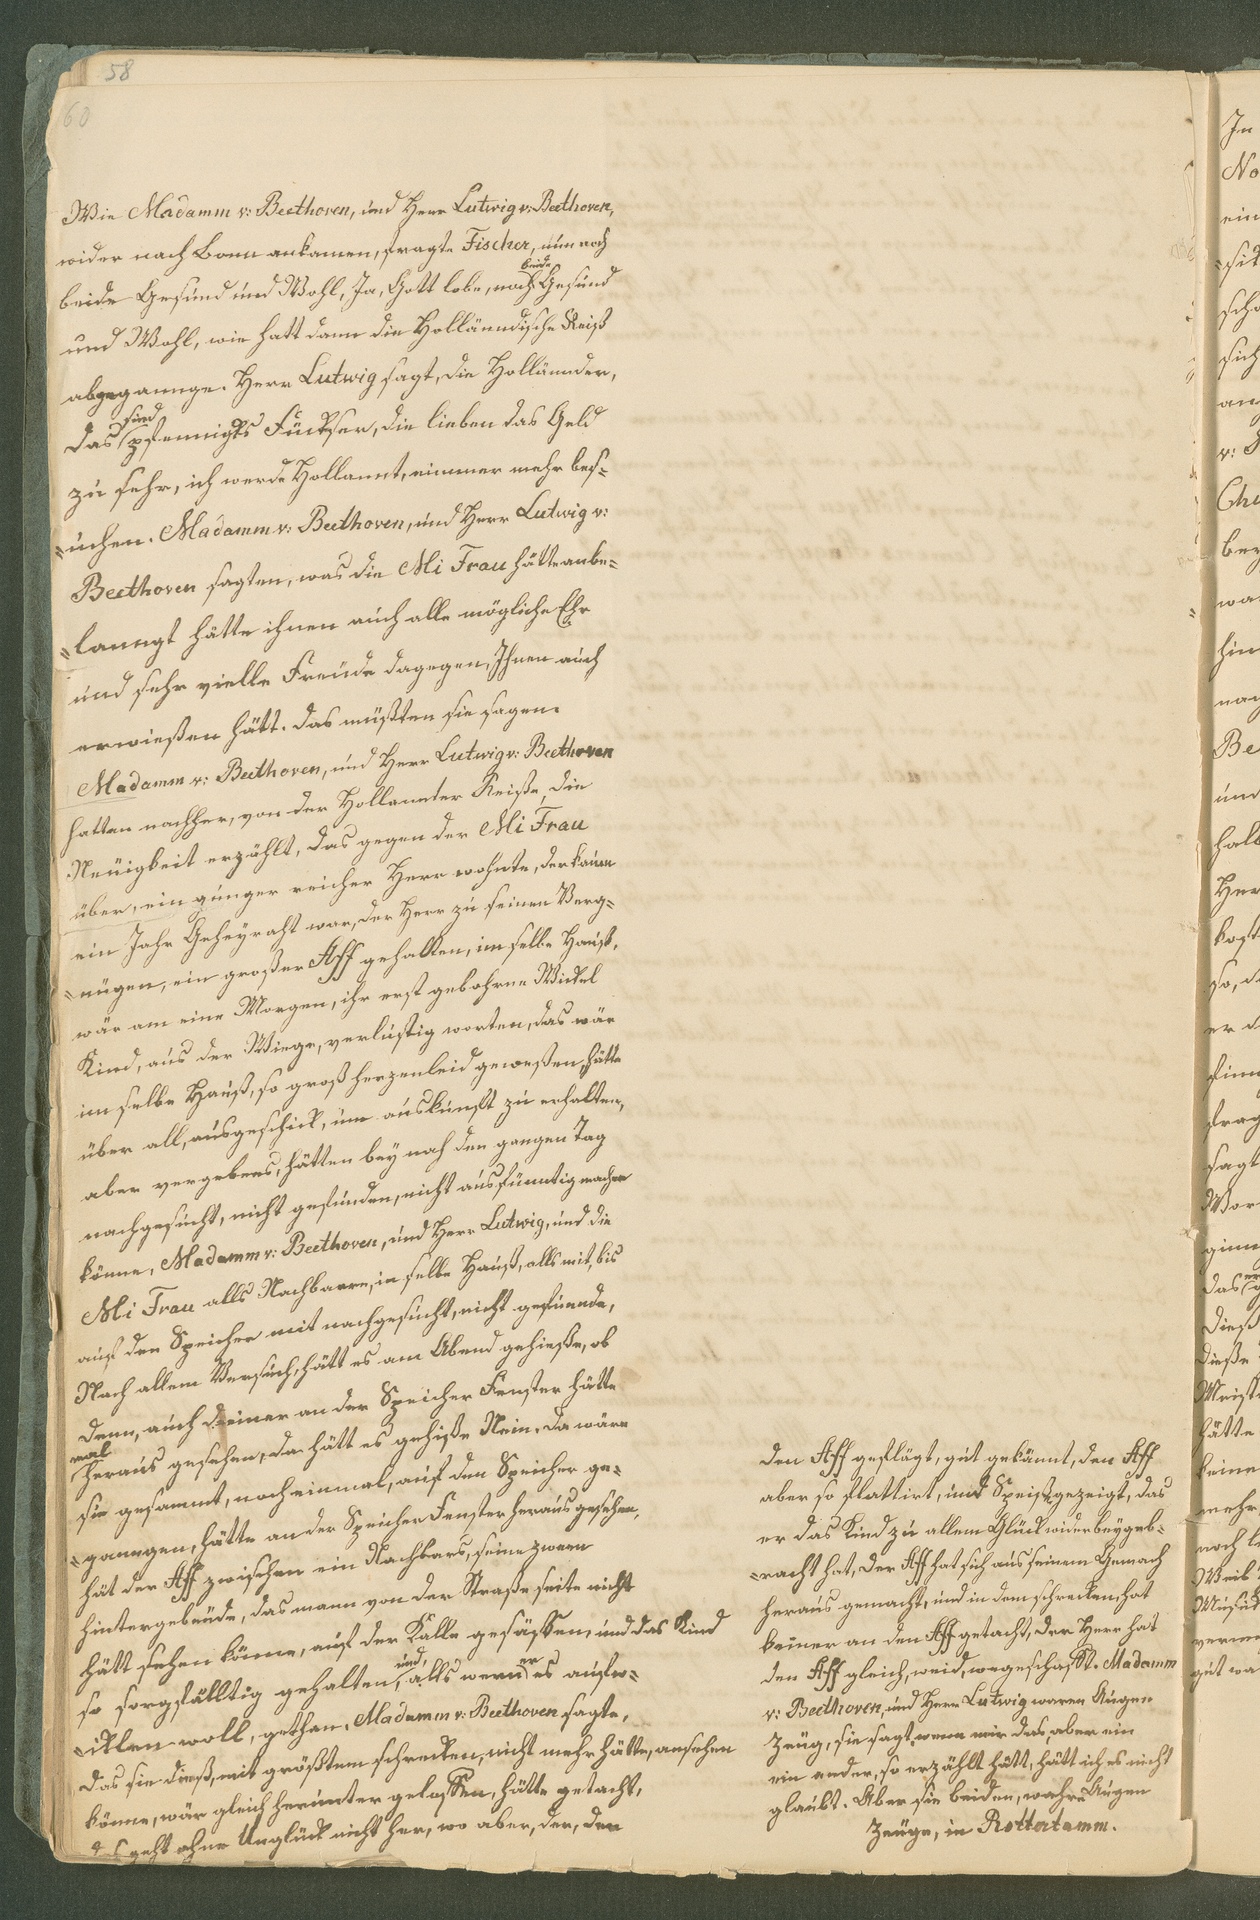 58
60
Wie Madamm v: Beethoven, und Herr Lutwig v: Beethoven,
wider nach Bonn ankamen, fragte Fischer, nun noch
beide Gesund und Wohl, Ja, Gott lobe, noch beide Gesund
und Wohl, wie hatt dann die Hollänndische Reiß
abgegannge. Herr Lutwig sagt, die Hollännder,
das sind pfennigks Fückser, die lieben das Geld
zu sehr, ich werde Hollannt, nimmer mehr bes=
=uchen. Madamm v: Beethoven, und Herr Lutwig v:
Beethoven sagten, was die Mi Frau hätte anbe=
=lanngt hätte ihnen auch alle mögliche Ehr
und sehr vielle Freude dagegen, Ihnen auch
erwießen hätt. das müßten sie sagen.
Madamm v: Beethoven, und Herr Lutwig v: Beethoven
hatten nachher, von der Hollannter Reiße, die
Neuigkeit erzählt, das gegen der Mi Frau
über, ein gunger reicher Herr wohnte, der kaum
ein Jahr Geheyraht war, der Herr zu seinen Verg=
=nügen, ein großer Aff gehalten, im selbe Hauß,
wär am eine Morgen, ihr erst gebohrne Wickel
Kind, aus der Wiege, verlustig worten, das wär
im selbe Hauß, so groß herzenleid geweßen, hätte
über all, ausgeschick, um auskunft zu erhalten,
aber vergebens, hätten bey nah den gangen Tag
nachgesucht, nicht gefunden, nicht ausfünntig machen
könne, Madamm v: Beethoven, und Herr Lutwig, und die
Mi Frau alls Nachbaren, in selbe Hauß, alls mit, bis
auf den Speicher mit nachgesucht, nicht gefunnde,
Nach allem Versuch, hätt es am Abend gehieße, ob
denn, auch keiner an der Speicher Fenster hätte
mal heraus gesehen, da hätt es gehiße Nein. da wäre
sie gesammt, noch einmal, auf den Speicher ge=
=ganngen, hätte an der Speicher Fenster heraus gesehen,
hät der Aff zwischen ein Nachbars, seine zwein
hintergebeude, das mann von der Straße seite nicht
hätt sehen könne, auf der Kalle gesässen, und das Kind
so sorgfälltig gehalten, und, alls wenn er es aufw=
=iklen woll, gethan. Madamm v: Beethoven sagte,
das sie dieß, mit größtem schrecken, nicht mehr hätte, ansehen
könne, wär gleich herunter gelassen, hätte getacht,
das geht ohne Unglück nicht her, wo aber, der, den
den Aff geflägt, gut gekännt, den Aff
aber so flattirt, und Speiße gezeigt, das
er das Kind zu allem Glück wider beygeb=
=racht hat, der Aff hat sich aus seinem Gemach
heraus gemacht, und in dem schrecken, hat
keiner an den Aff getacht, der Herr hat
den Aff gleich, weid, wegeschafft. Madamm
v: Beethoven, und Herr Lutwig waren Augen
Zeug, sie sagt, wenn mir das, aber ein
ein ander, so erzählt hätt, hätt ich es nicht
glaubt. Aber sie beiden, wahre Augen
Zeuge, in Rottertamm.